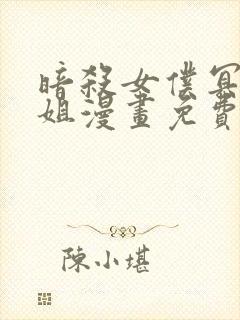 暗殺女僕冥
姐漫畫免費
陳小堪